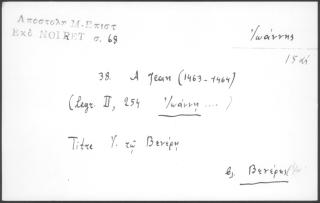 Ἀποστόλη Μ-Επιστ
Εκδ NOIRET σ. 68
Ἰωάννης
15 αἰ
38. A Jean (1463-1464)
(Legr. II, 254 Ἰωάννῃ ....)
Titre Ἰ. τῷ Βενέρῃ
Βενέρης